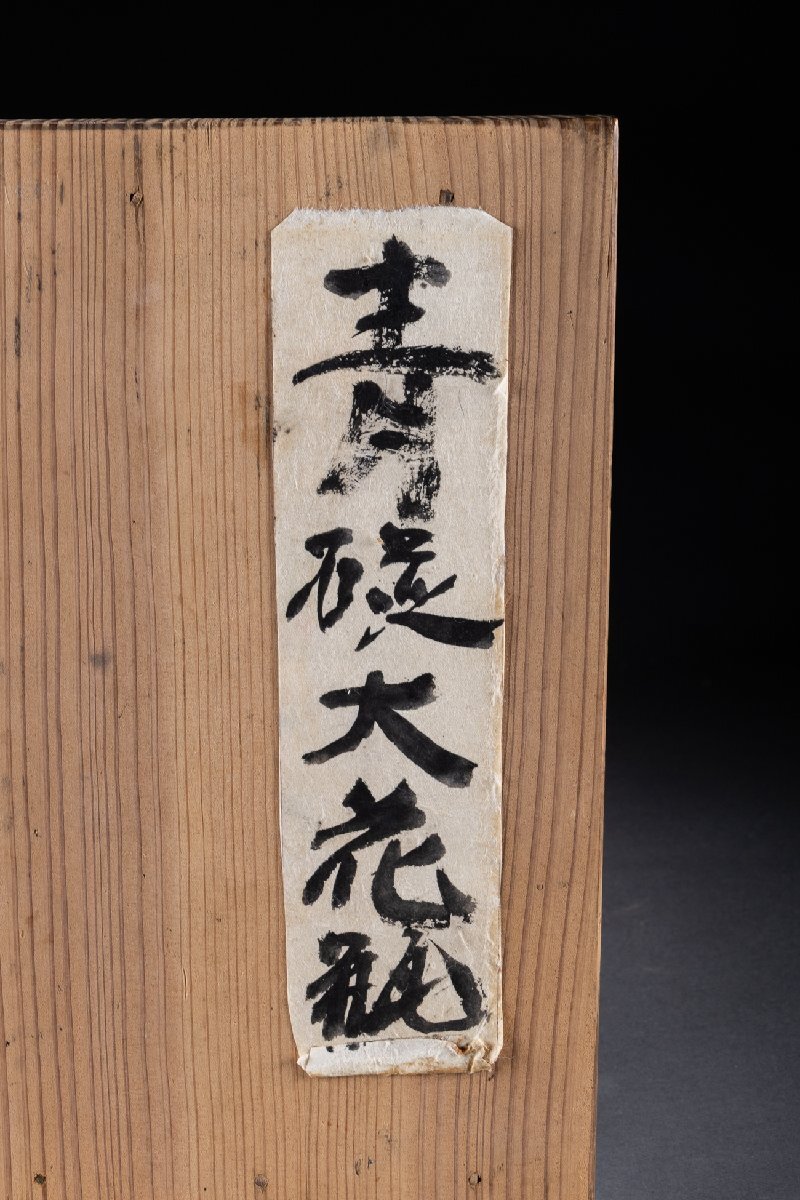 青磁大花瓶